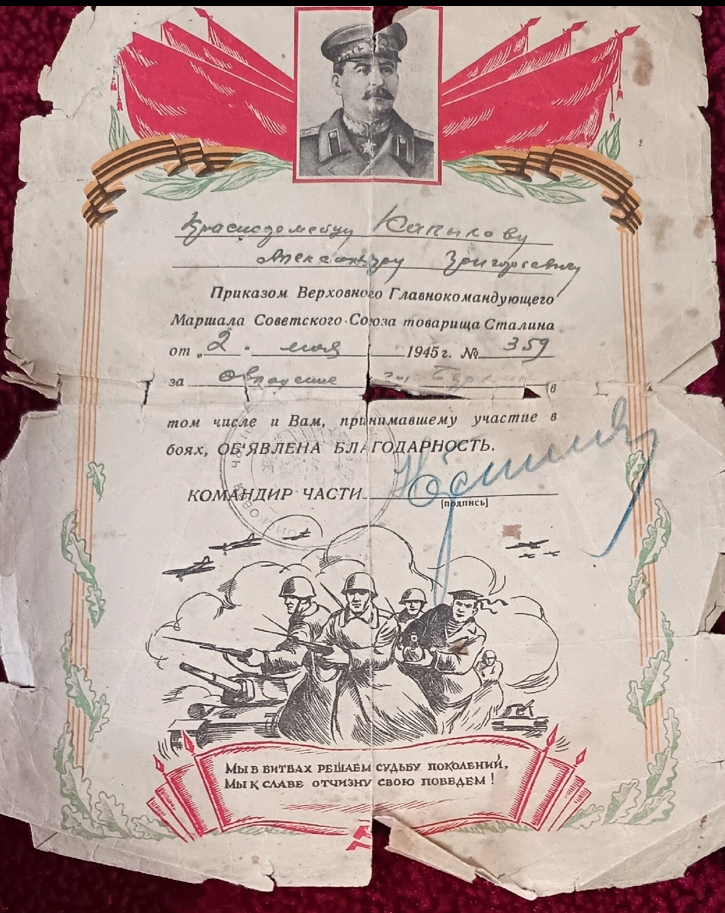 Красноармейцу Капылову
Александру Григорьевичу
Приказом Верховного Главнокомандующего
Маршала Советского Союза товарища Сталина
от „2" мая 1945 г. № 359
за овладение гор. Берлин в
том числе и Вам, принимавшему участие в
боях, ОБ'ЯВЛЕНА БЛАГОДАРНОСТЬ.
КОМАНДИР ЧАСТИ
[подпись]
МЫ В БИТВАХ РЕШАЕМ СУДЬБУ ПОКОЛЕНИЙ,
МЫ К СЛАВЕ ОТЧИЗНУ СВОЮ ПОВЕДЕМ!